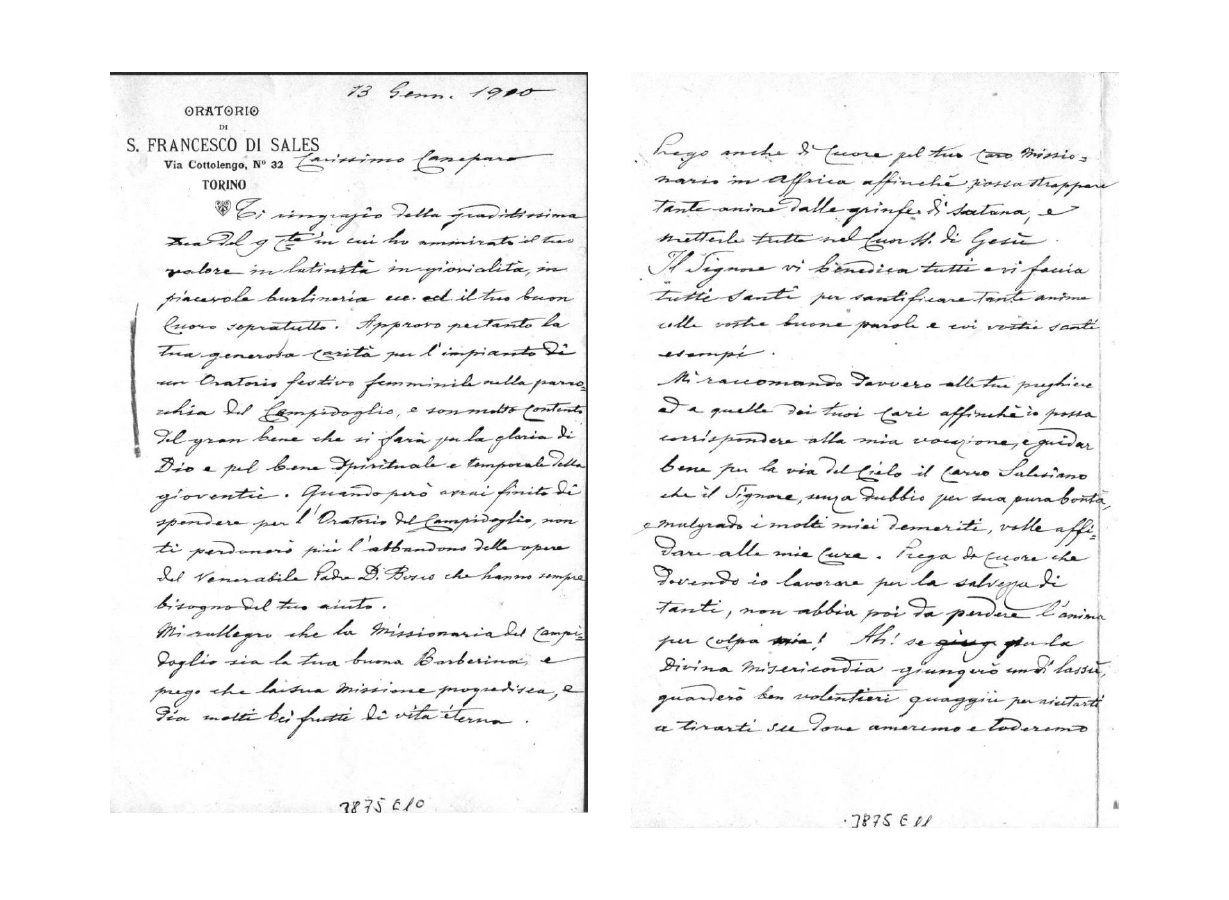 13 Genn. 1900
ORATORIO
DI
S. FRANCESCO DI SALES
Via Cottolengo, Nº 32
TORINO
Carissimo Canepara
Ti ringrazio della graditissima
tua del 9 cte in cui ho ammirato il tuo
valore in latinità in giovialità, in
piacevole burlineria ecc. ed il tuo buon
Cuore sopratutto. Approvo pertanto la
tua generosa carità per l'impianto di
un Oratorio festivo femminile nella parro=
cchia del Campidoglio, e son molto contento
del gran bene che si farà per la gloria di
Dio e pel bene Spirituale e temporale della
gioventù. Quando però avrai finito di
spendere per l'Oratorio del Campidoglio, non
ti perdonerò più l'abbandono delle opere
del Venerabile Padre D. Bosco che hanno sempre
bisogno del tuo aiuto.
Mi rallegro che la Missionaria del Campi=
doglio sia la tua buona Barberina, e
prego che la sua Missione progredisca, e
dia molti bei frutti di vita eterna.
3875 E10
Prego anche di Cuore pel tuo Caro Missio=
nario in Affrica affinchè possa strappare
tante anime dalle grinfe di Satana, e
metterle tutte nel Cuor SS. di Gesù.
Il Signore vi benedica tutti e vi faccia
tutti Santi per santificare tante anime
colle vostre buone parole e coi vostri santi
esempi.
Mi raccomando davvero alle tue preghiere
ed a quelle dei tuoi Cari affinchè io possa
corrispondere alla mia vocazione, e guidar
bene per la via del Cielo il Carro Salesiano
che il Signore, senza dubbio per sua pura bontà,
e malgrado i molti miei demeriti, volle affi=
dare alle mie Cure. Prega di Cuore che
dovendo io lavorare per la salvezza di
tanti, non abbia poi da perdere l'anima
per colpa mia! Ah! se per la
Divina Misericordia giungerò un dì lassù,
guarderò ben volentieri quaggiù per aiutarti
a tirarti su dove ameremo e loderemo
3875 E11